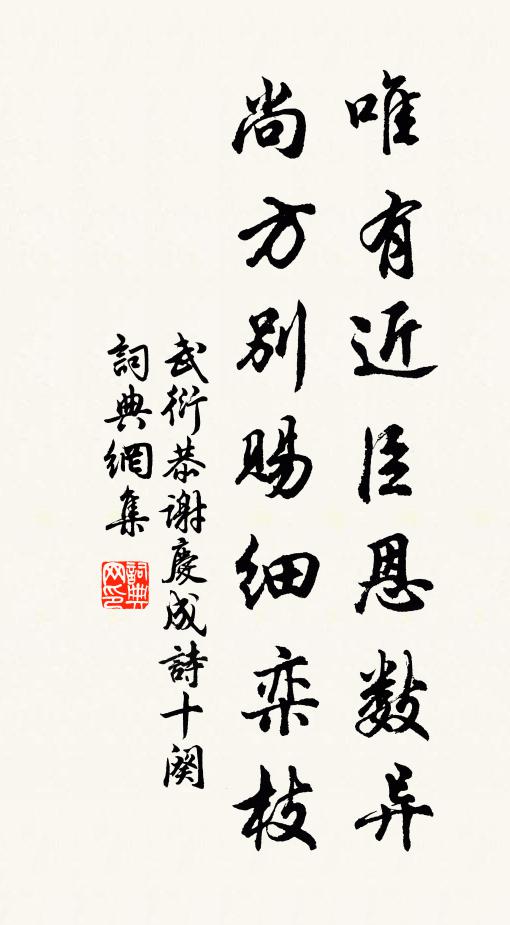 唯有近臣恩数异
尚方别赐细栾枝
武衍恭谢慶成詩十闋
詞典網集
詞典网印